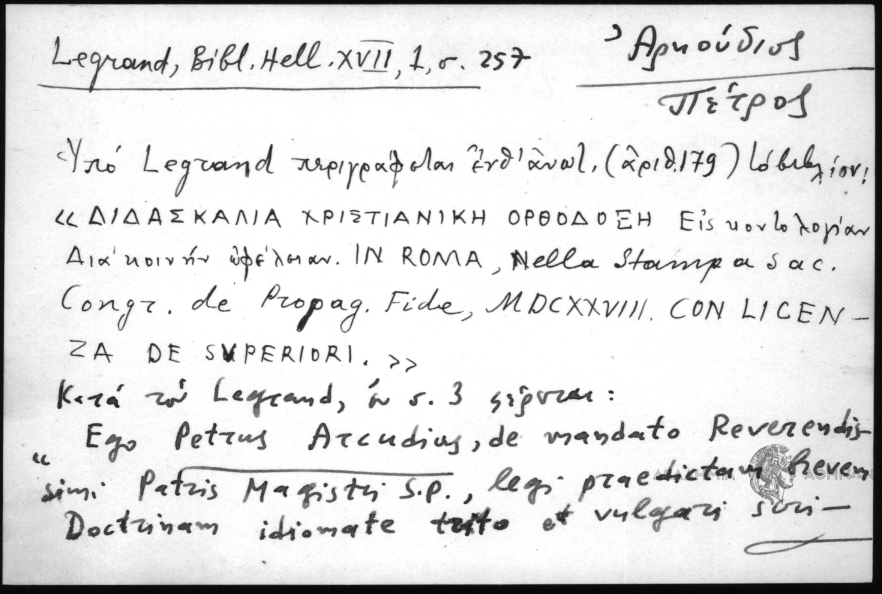 Legrand, Bibl. Hell. XVII, 1, σ. 257
Ἀρκούδιος
Πέτρος
Ὑπό Legrand περιγράφεται ἐνθ' ἀνωτ. (ἀριθ. 179) τό βιβλίον:
«ΔΙΔΑΣΚΑΛΙΑ ΧΡΙΣΤΙΑΝΙΚΗ ΟΡΘΟΔΟΞΗ Εἰς κοντολογίαν
Διά κοινήν ὠφέλειαν. IN ROMA, Nella Stampa sac.
Congr. de Propag. Fide, MDCXXVIII. CON LICEN–
ZA DE SVPERIORI.»
Κατά τόν Legrand, ἐν σ. 3 φέρεται:
"Ego Petrus Arcudius, de mandato Reverendis–
simi Patris Magistri S.P., legi praedictam brevem
Doctrinam idiomate trito et vulgari scri–